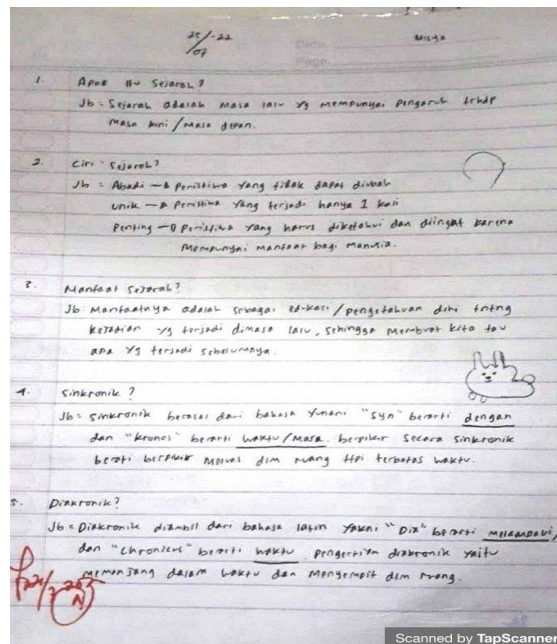 25/-22
/07
Misya
Date
Page
1. Apaa itu Sejarah?
Jb = Sejarah adalah masa lalu yg mempunyai pengaruh trhdp
masa kini / masa depan.
2. Ciri" Sejarah?
Jb = Abadi → Peristiwa yang tidak dapat diubah
unik → Peristiwa yang terjadi hanya 1 kali
Penting → Peristiwa yang harus diketahui dan diingat karena
mempunyai manfaat bagi manusia.
3. Manfaat Sejarah?
Jb: Manfaatnya adalah sebagai edukasi / pengetahuan diri tntng
kejadian yg terjadi dimasa lalu, sehingga membuat kita tau
apa yg terjadi sebelumnya.
4. Sinkronik?
Jb = Sinkronik berasal dari bahasa Yunani "Syn" berarti dengan
dan "kronos" berarti waktu / masa. berpikir secara sinkronik
berati berpikir meluas dlm ruang ttpi terbatas waktu.
5. Diakronik?
Jb = Diakronik diambil dari bahasa latin yakni "Dia" berarti melampaui,
dan "chronicus" berarti waktu. pengertian diakronik yaitu
memanjang dalam waktu dan menyempit dlm ruang.
Scanned by TapScanner